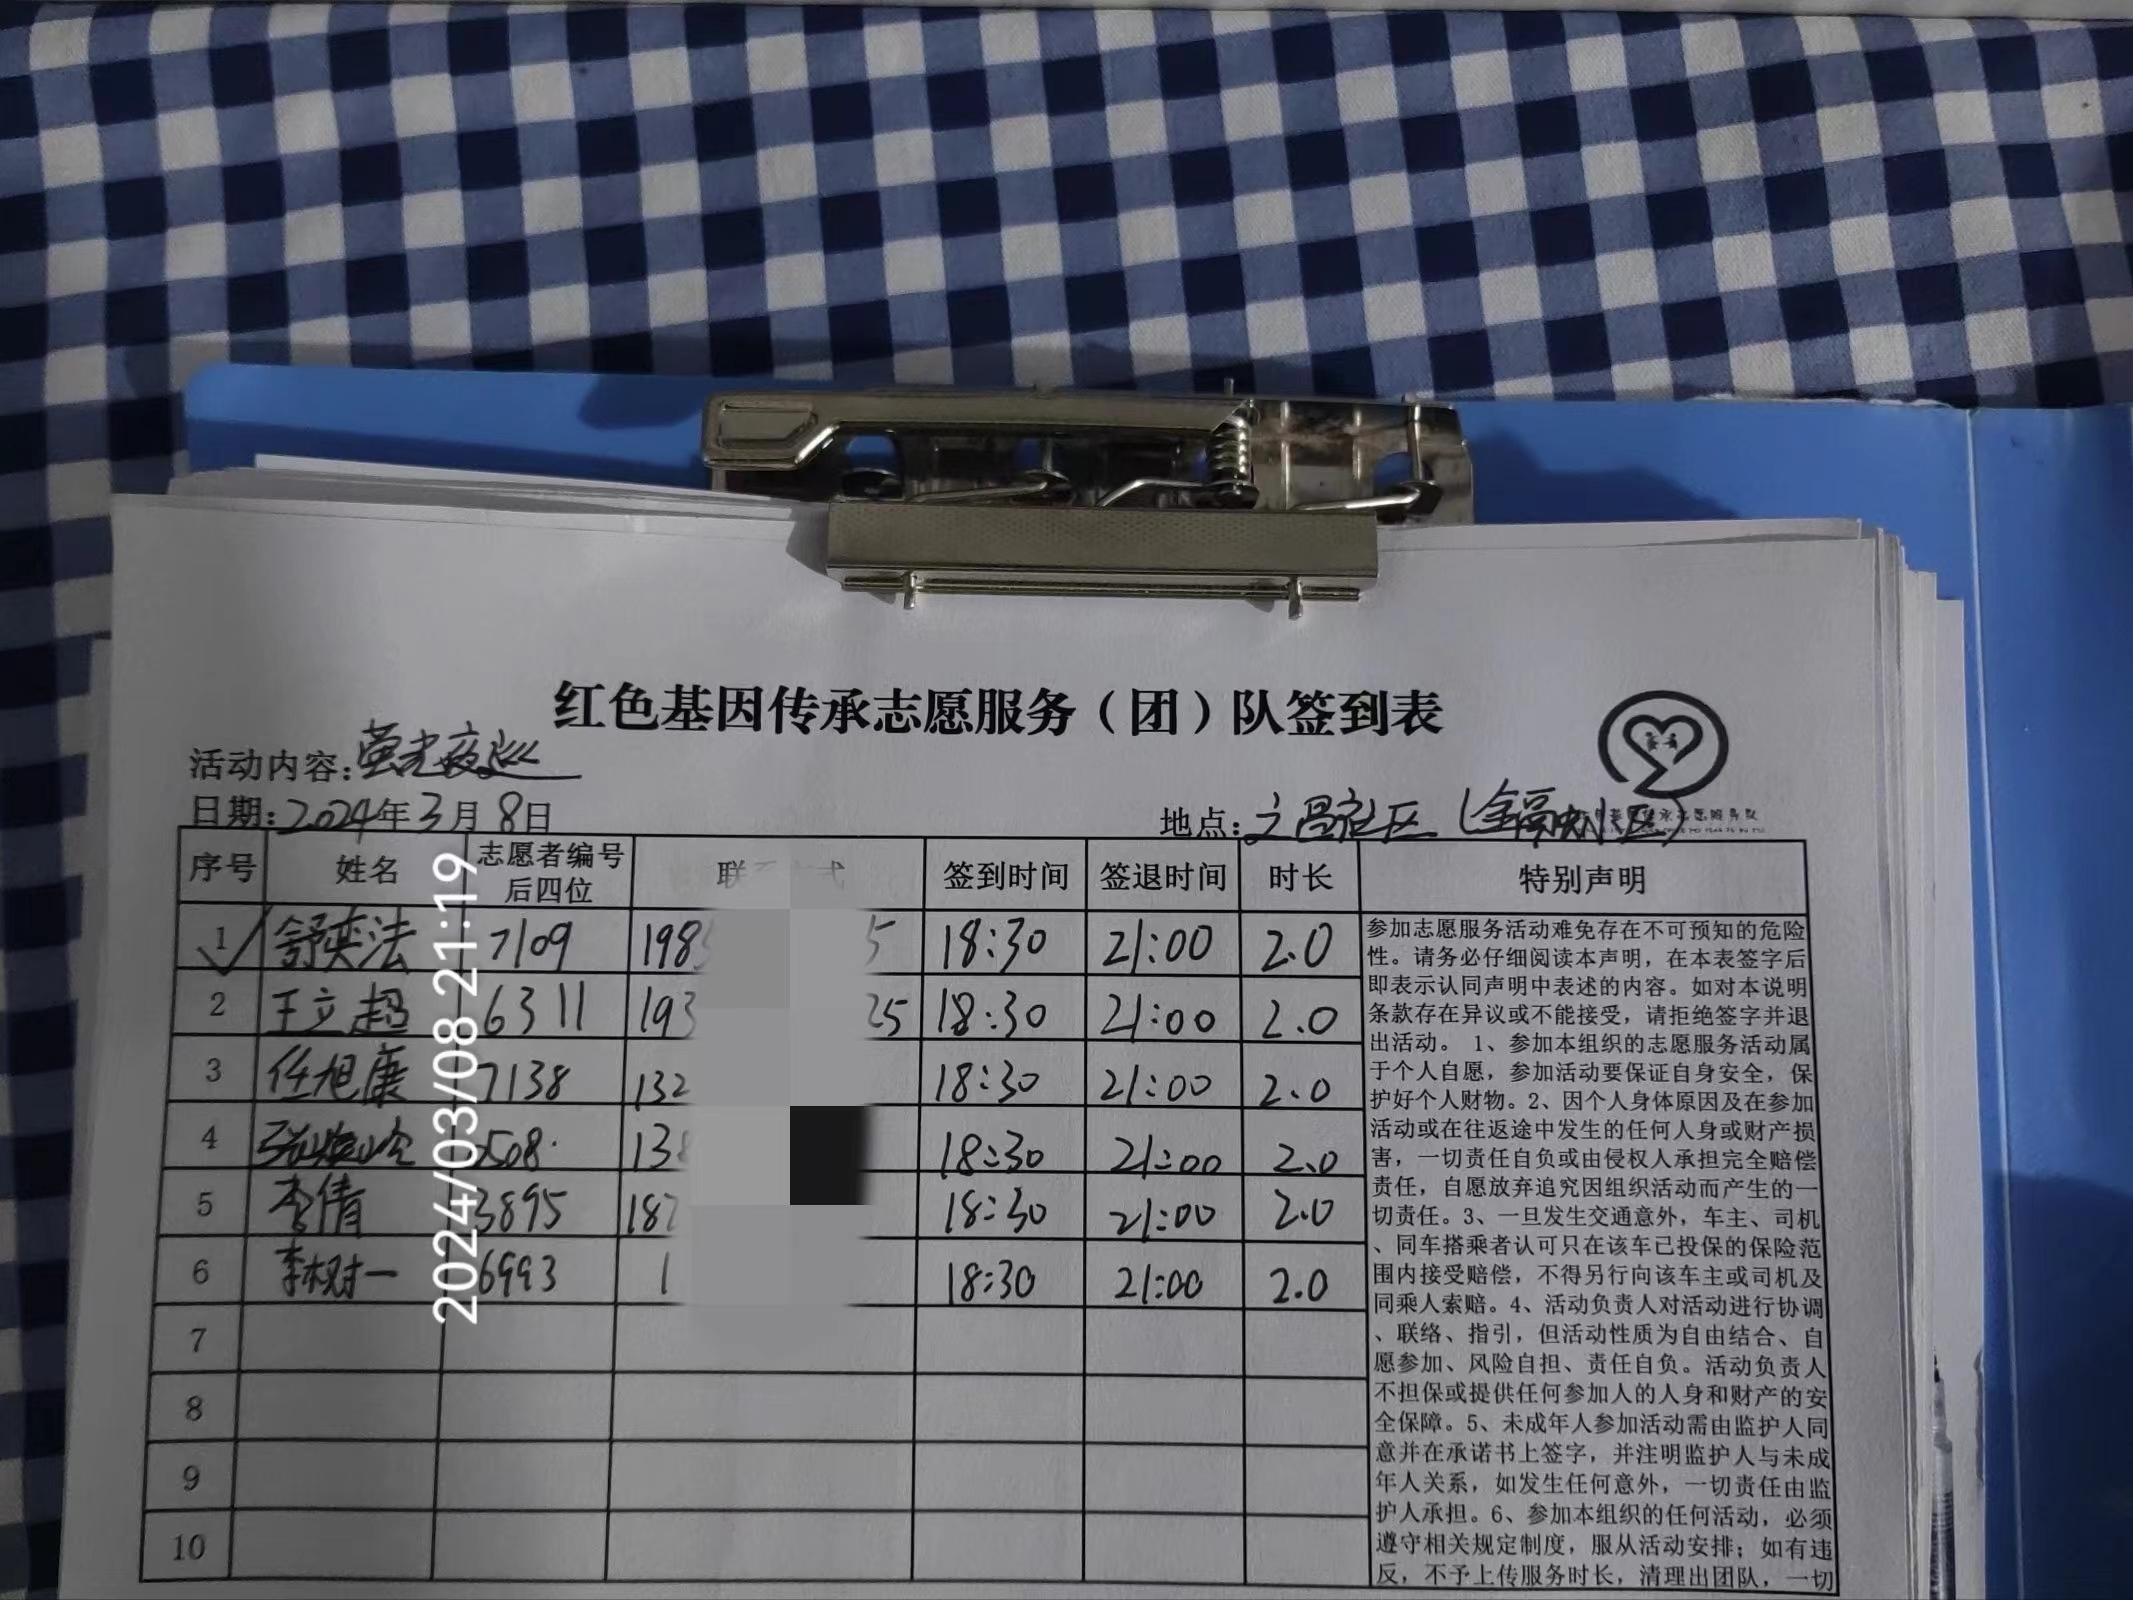 红色基因传承志愿服务（团）队签到表
活动内容：萤光夜巡
日期：2024年3月8日
地点：文昌社区（金隔小区）
序号 姓名 志愿者编号后四位 联 式 签到时间 签退时间 时长 特别声明
1 舒奕法 7109 198 5 18:30 21:00 2.0
2 王立超 6311 193 25 18:30 21:00 2.0
3 任旭康 7138 132 18:30 21:00 2.0
4 508 138 18:30 21:00 2.0
5 李倩 3895 187 18:30 21:00 2.0
6 李树一 6993 1 18:30 21:00 2.0
7
8
9
10
参加志愿服务活动难免存在不可预知的危险
性。请务必仔细阅读本声明，在本表签字后
即表示认同声明中表述的内容。如对本说明
条款存在异议或不能接受，请拒绝签字并退
出活动。 1、参加本组织的志愿服务活动属
于个人自愿，参加活动要保证自身安全，保
护好个人财物。2、因个人身体原因及在参加
活动或在往返途中发生的任何人身或财产损
害，一切责任自负或由侵权人承担完全赔偿
责任，自愿放弃追究因组织活动而产生的一
切责任。3、一旦发生交通意外，车主、司机
、同车搭乘者认可只在该车已投保的保险范
围内接受赔偿，不得另行向该车主或司机及
同乘人索赔。4、活动负责人对活动进行协调
、联络、指引，但活动性质为自由结合、自
愿参加、风险自担、责任自负。活动负责人
不担保或提供任何参加人的人身和财产的安
全保障。5、未成年人参加活动需由监护人同
意并在承诺书上签字，并注明监护人与未成
年人关系，如发生任何意外，一切责任由监
护人承担。6、参加本组织的任何活动，必须
遵守相关规定制度，服从活动安排；如有违
反，不予上传服务时长，清理出团队，一切
2024/03/08 21:19